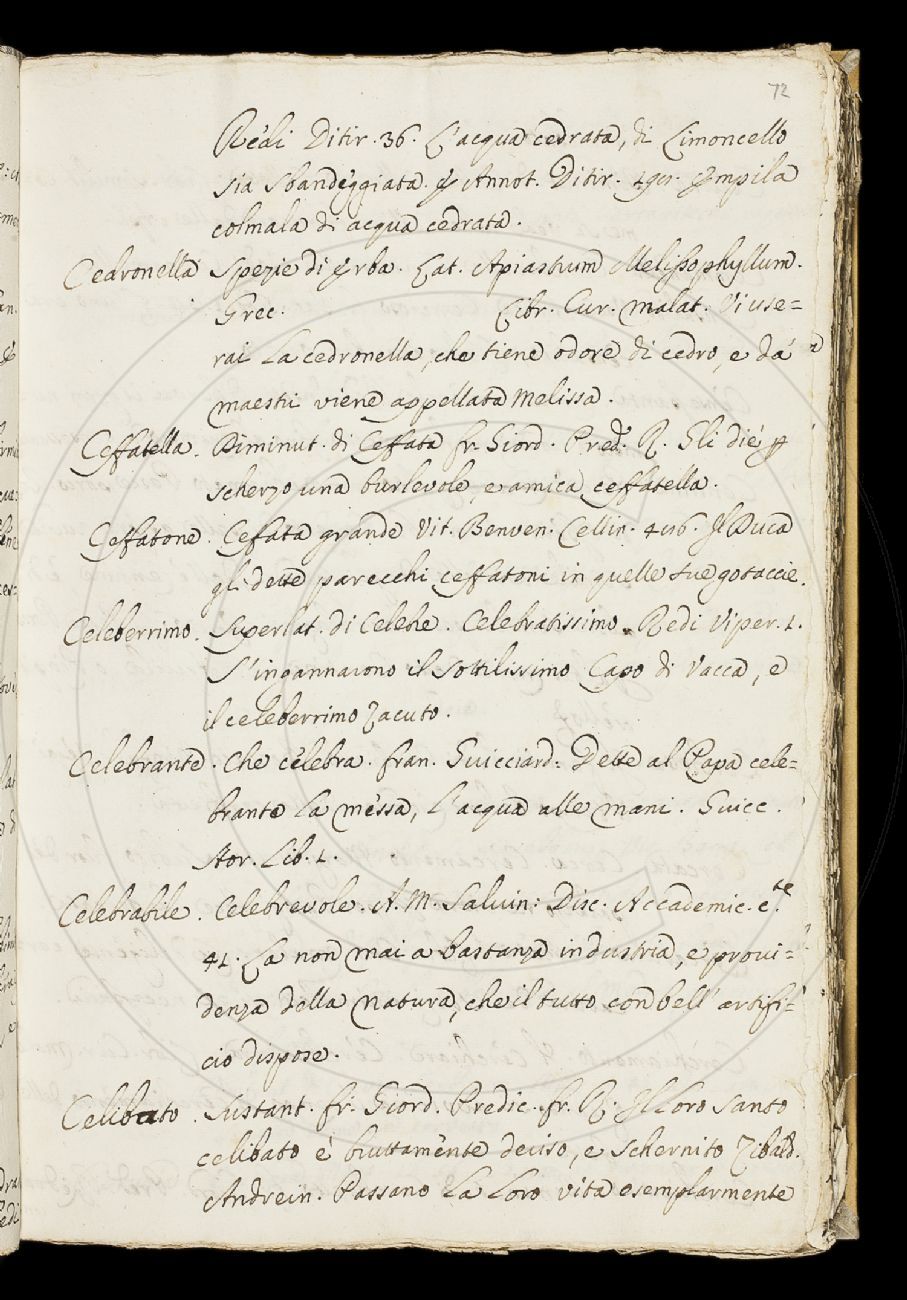 72
Redi Ditir. 36. L'acqua cedrata, di Limoncello
sia sbandeggiata. & Annot. Ditir. Empila
colmala di acqua cedrata.
Cedronella Spezie di Erba. Lat. Apiastrum Melissophyllum.
Grec. Libr. Cur. malat. Vi use=
rai la cedronella, che tiene odore di cedro, e dà
maestri viene appellata Melissa.
Ceffatella. Diminut. di Ceffata fr. Giord. Pred. R. Gli diè
scherzo una burlevole, e amica ceffatella.
Ceffatone. Cefata grande Vit. Benven. Cellin. 416. Il Duca
gli dette parecchi ceffatoni in quelle sue gotaccie.
Celeberrimo. Superlat. di Celebre. Celebratissimo. Redi Viper. 1.
S'ingannarono il sottilissimo Capo di Vacca, e
il celeberrimo Zacuto.
Celebrante. Che celebra. fran. Guicciard: Dette al Papa cele=
brante la messa, l'acqua alle mani. Guicc.
Stor. Lib. 1.
Celebrabile. Celebrevole. A. M. Salvin: Disc. Accademic. e.te
41. La non mai a bastanza industria, e provi=
denza della natura, che il tutto con bell' artifi=
cio dispose.
Celibato. Sustant. fr. Giord. Predic. fr. R. Il loro santo
celibato è bruttamente deriso, e schernito Zibald.
Andrein. Passano la loro vita esemplarmente